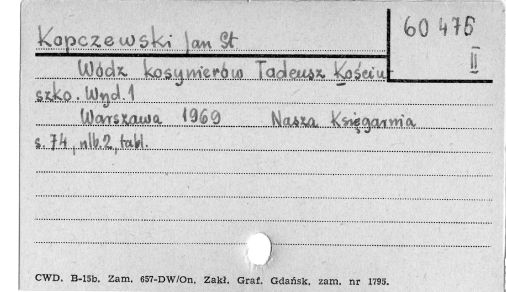 Kopczewski Jan St
60 475
II
Wódz kosynierów Tadeusz Kościu-
szko. Wyd.1
Warszawa 1969 Nasza Księgarnia
s. 74, nlb.2, tabl.
CWD. B-15b. Zam. 657-DW/On. Zakł. Graf. Gdańsk, zam. nr 1795.